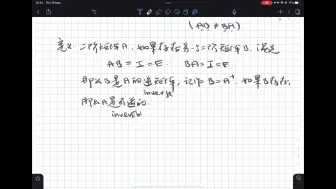 (AB ≠ BA)
定义 二阶矩阵A, 如果存在另一个二阶矩阵B, 满足
AB = I = E  BA = I = E
那么B是A的逆矩阵, 记作 B = A⁻¹. 如果B存在,
inverse
那么A是可逆的.